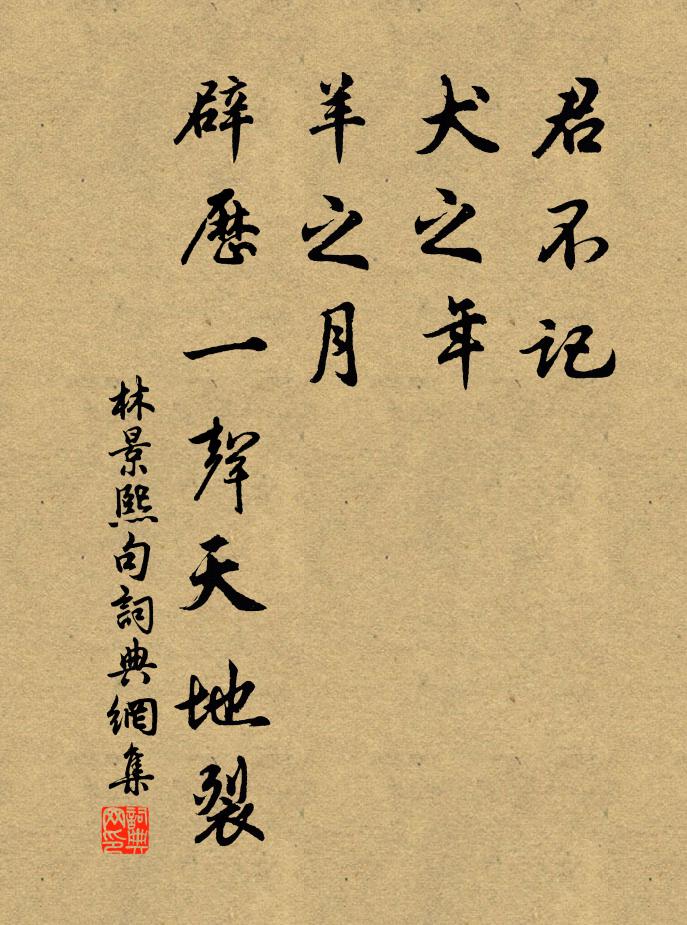 君不记
犬之年
羊之月
辟历一聲天地裂
林景熙句詞典網集
詞典网印